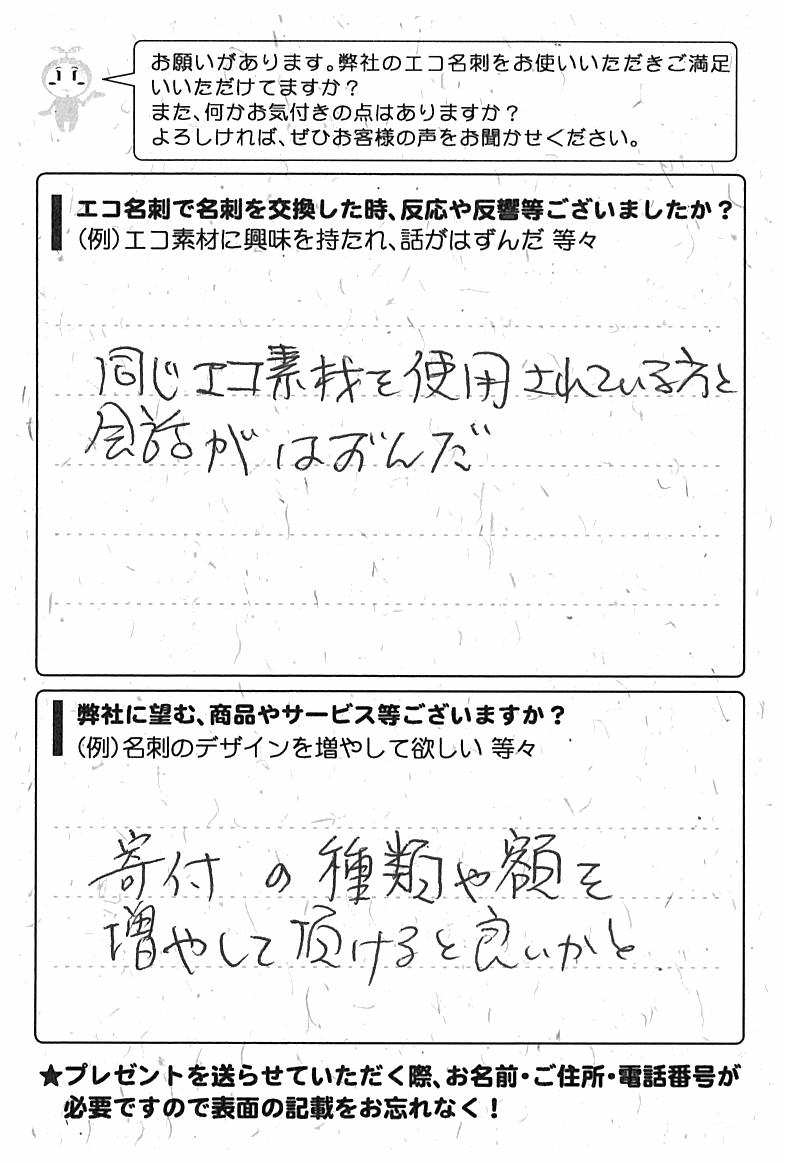 お願いがあります。弊社のエコ名刺をお使いいただきご満足
いいただけてますか？
また、何かお気付きの点はありますか？
よろしければ、ぜひお客様の声をお聞かせください。
エコ名刺で名刺を交換した時、反応や反響等ございましたか？
（例）エコ素材に興味を持たれ、話がはずんだ 等々
同じエコ素材を使用されている方と
会話がはずんだ
弊社に望む、商品やサービス等ございますか？
（例）名刺のデザインを増やして欲しい 等々
寄付の種類や額を
増やして頂けると良いかと
★プレゼントを送らせていただく際、お名前・ご住所・電話番号が
必要ですので表面の記載をお忘れなく！